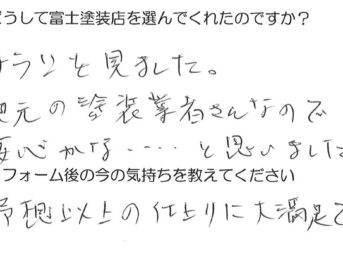 うして富士塗装店を選んでくれたのですか？
チラシを見ました。
地元の塗装業者さんなので
安心かな‥‥と思いました
フォーム後の今の気持ちを教えてください
予想以上の仕上りに大満足で